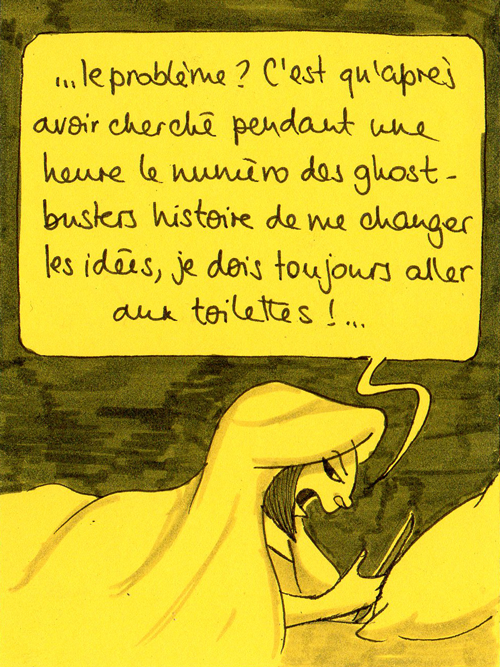 ...le problème? C'est qu'après
avoir cherché pendant une
heure le numéro des ghost-
busters histoire de me changer
les idées, je dois toujours aller
aux toilettes!...